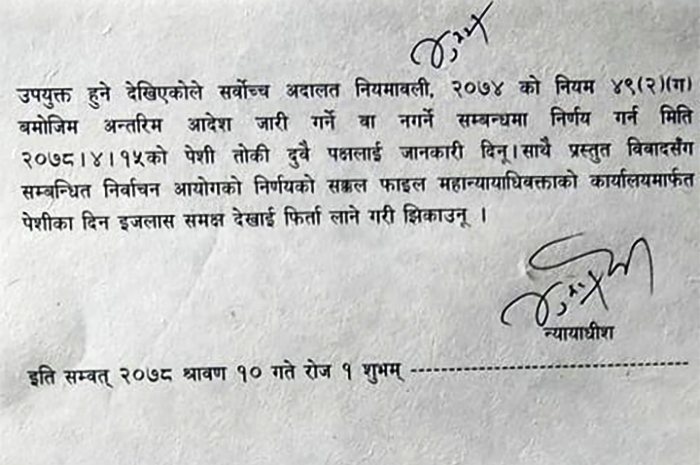 उपयुक्त हुने देखिएकोले सर्वोच्च अदालत नियमावली, २०७४ को नियम ४९(२)(ग)
बमोजिम अन्तरिम आदेश जारी गर्ने वा नगर्ने सम्बन्धमा निर्णय गर्न मिति
२०७८।४।१५को पेशी तोकी दुवै पक्षलाई जानकारी दिनू।साथै प्रस्तुत विवादसँग
सम्बन्धित निर्वाचन आयोगको निर्णयको सक्कल फाइल महान्यायाधिवक्ताको कार्यालयमार्फत
पेशीका दिन इजलास समक्ष देखाई फिर्ता लाने गरी झिकाउनू ।
न्यायाधीश
इति सम्वत् २०७८ श्रावण १० गते रोज १ शुभम् ------------------------------------